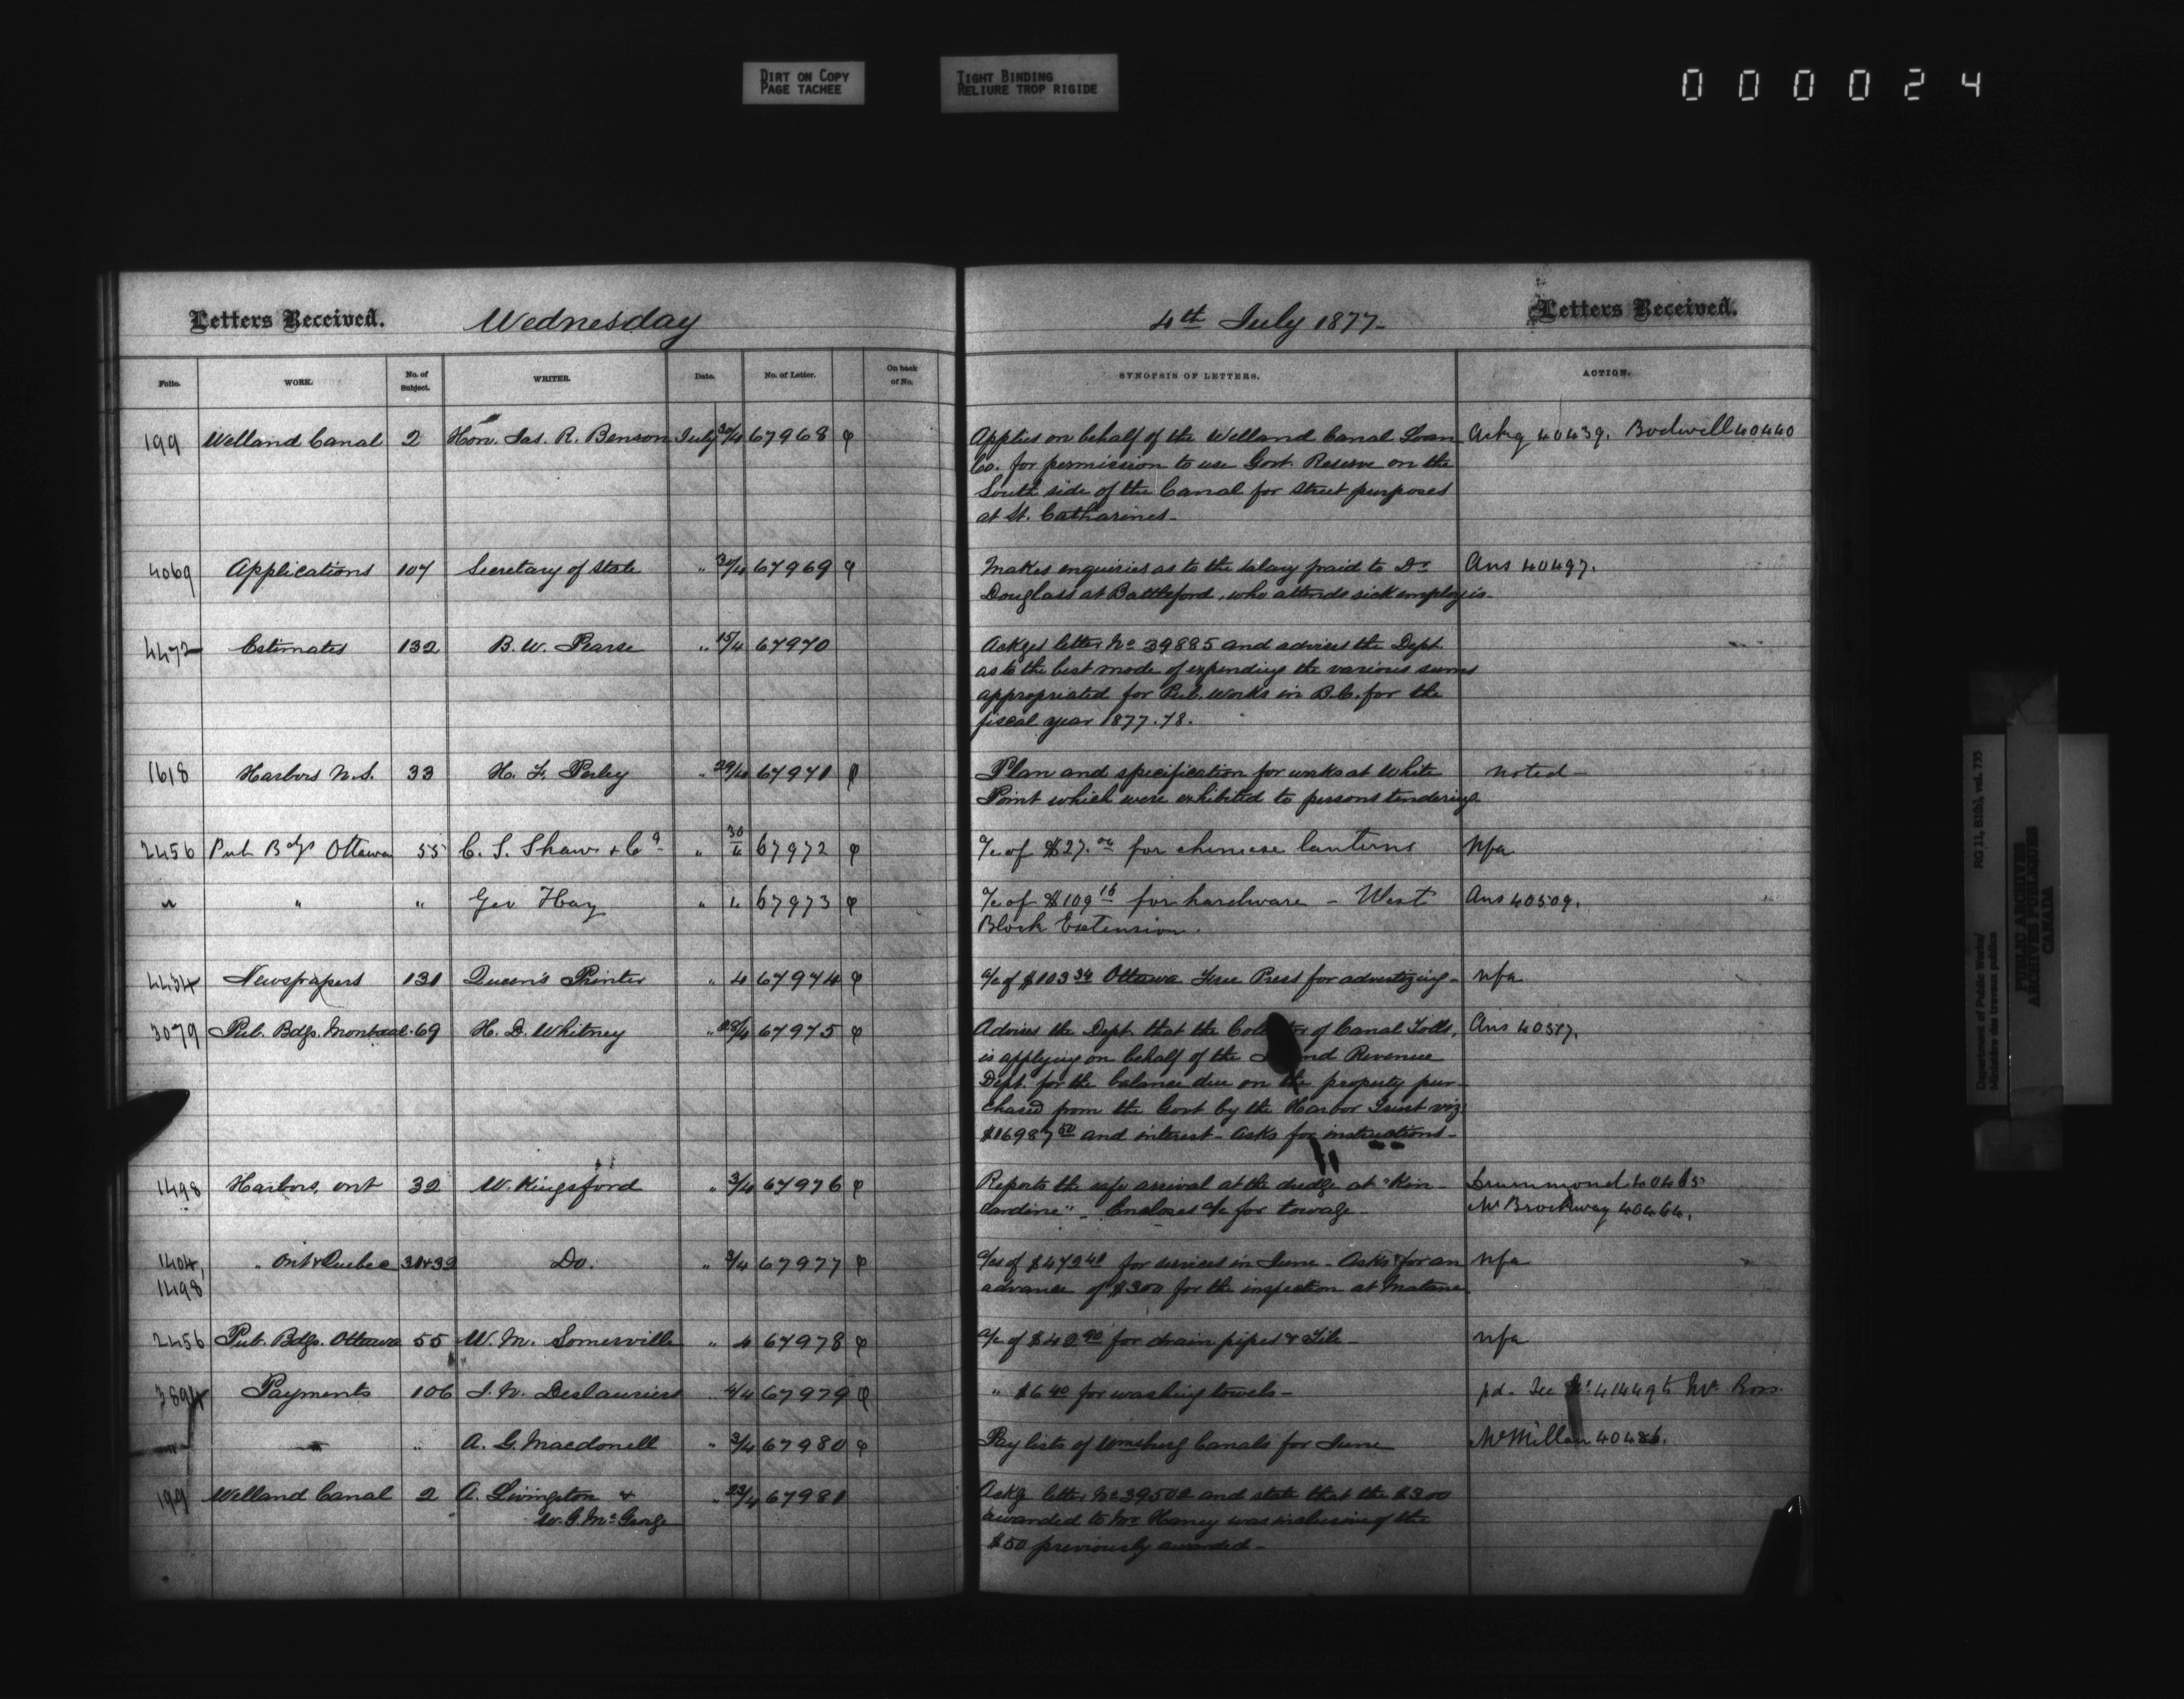 DIRT ON COPY
PAGE TACHEE
TIGHT BINDING
RELIURE TROP RIGIDE
000024
Letters Received. Wednesday
4th July 1877- Letters Received.
Folio. WORK. No. of Subject. WRITER. Date. No. of Letter. On back of No. SYNOPSIS OF LETTERS. ACTION.
199 Welland Canal 2 Hon. Jas. R. Benson July 30/4 67968 φ Applies on behalf of the Welland Canal Loan Ackg 40439. Bodwell 40440
Co. for permission to use Govt. Reserve on the
South side of the Canal for street purposes
at St. Catharines-
4069 Applications 107 Secretary of State " 30/4 67969 φ Makes enquiries as to the salary paid to Dr Ans 40497.
Douglass at Battleford, who attends sick employés-
4472 Estimates 132 B. W. Pearse " 15/4 67970 Ackges letter No 39885 and advises the Dept.
as to the best mode of expending the various sums
appropriated for Pub. Works in B.C. for the
fiscal year 1877.78.
1618 Harbors N.S. 33 H. F. Perley " 29/4 67971 φ Plan and specification for works at White noted-
Point which were exhibited to persons tendering-
2456 Pub Bdgs Ottawa 55 C. S. Shaw & Co " 30/4 67972 φ a/c of $27. for chinese lanterns Nfa
" " " Geo Hay " 4 67973 φ a/c of $109 16 for hardware - West Ans 40509.
Block Extension.
4434 Newspapers 131 Queen's Printer " 4 67974 φ a/c of $103 34 Ottawa Free Press for advertizing- nfa
3079 Pub. Bdgs. Montreal 69 H. D. Whitney " 28/4 67975 φ Advises the Dept. that the of Canal Tolls, Ans 40517.
is applying on behalf of the Revenue
Dept. for the balance due on the property pur-
chased from the Govt by the Harbor Trust viz:
$16987 50 and interest- Asks for instructions-
1498 Harbors, Ont 32 W. Kingsford " 3/4 67976 φ Reports the safe arrival at the dredge at "Kin- Drummond 40465
cardine"- Encloses a/c for towage- Mr Brockway 40464.
1404, " Ont & Quebec 31&32 Do. " 3/4 67977 φ a/cs of $472 41 for services in June- Asks for an nfa
1498 advance of $300 for the inspection at Matane
2456 Pub. Bdgs. Ottawa 55 W. M. Somerville " 4 67978 φ a/c of $40 90 for drain pipes & Tile- nfa
3894 Payments 106 J. N. Deslauriers " 4/4 67979 φ " $6 40 for washing towels- pd- See No 41449 to Mr Ross.
" " " A. G. Macdonell " 3/4 67980 φ Pay lists of Wmsburg Canals for June McMillan 40486.
199 Welland Canal 2 A. Livingston & " 23/4 67981 Ackg letter No 39502 and state that the $300
W. G. McGeorge awarded to Mr Haney was inclusive of the
$50 previously awarded-
Department of Public Works/ RG 11, B1(b), vol. 735
Ministère des travaux publics
PUBLIC ARCHIVES
ARCHIVES PUBLIQUES
CANADA